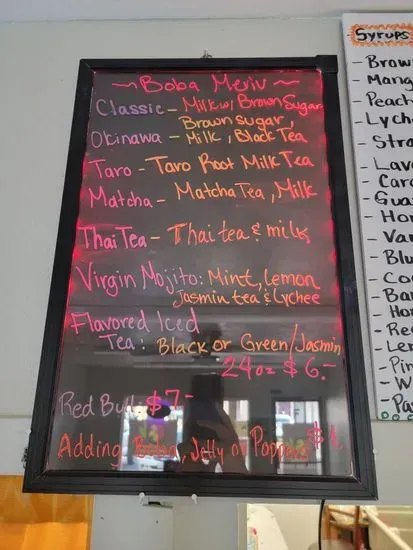 ~ Boba Menu ~
Classic - Milk w/ Brown Sugar
Okinawa - Brown sugar,
Milk, Black Tea
Taro - Taro Root Milk Tea
Matcha - Matcha Tea, Milk
Thai Tea - Thai tea & milk
Virgin Mojito: Mint, lemon
Jasmin tea & Lychee
Flavored Iced
Tea: Black or Green/Jasmin
24oz $6.-
Red Bull: $7-
Adding Boba, Jelly or Poppers $1
Syrups
- Brow
- Mang
- Peach
- Lych
- Stra
- Lav
- Car
- Gua
- Ho
- Va
- Blu
- Co
- Ba
- Ho
- Re
- Le
- Pin
- W
- Pa